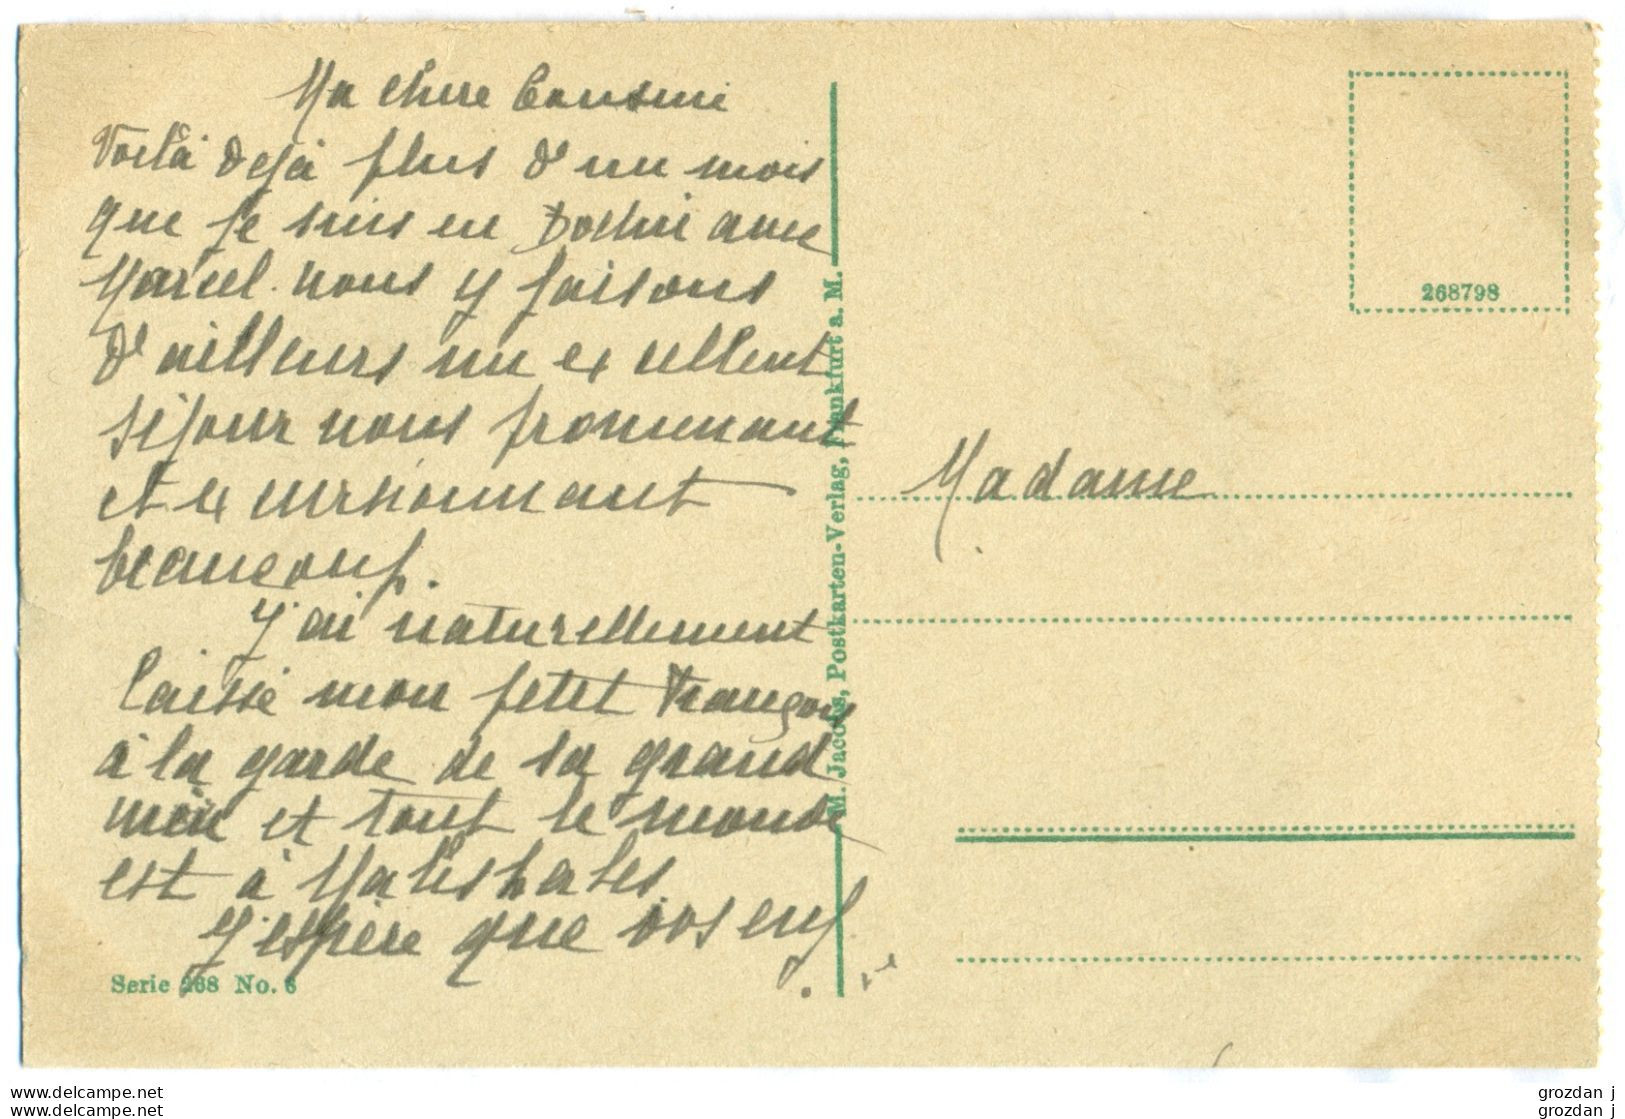 Ma chère Cousine
Voilà déjà plus d'un mois
que je suis en avec
Marcel. nous y faisons
d'ailleurs un excellent
séjour nous promenant
et excursionnant
beaucoup.
J'ai naturellement
laissé mon petit François
à la garde de sa grand
mère et tout le monde
est à
J'espère que vos enf
Serie 268 No. 6
M. Jacobs, Postkarten-Verlag, Frankfurt a. M.
268798
Madame
delcampe.net
delcampe.net
grozdan j
grozdan j